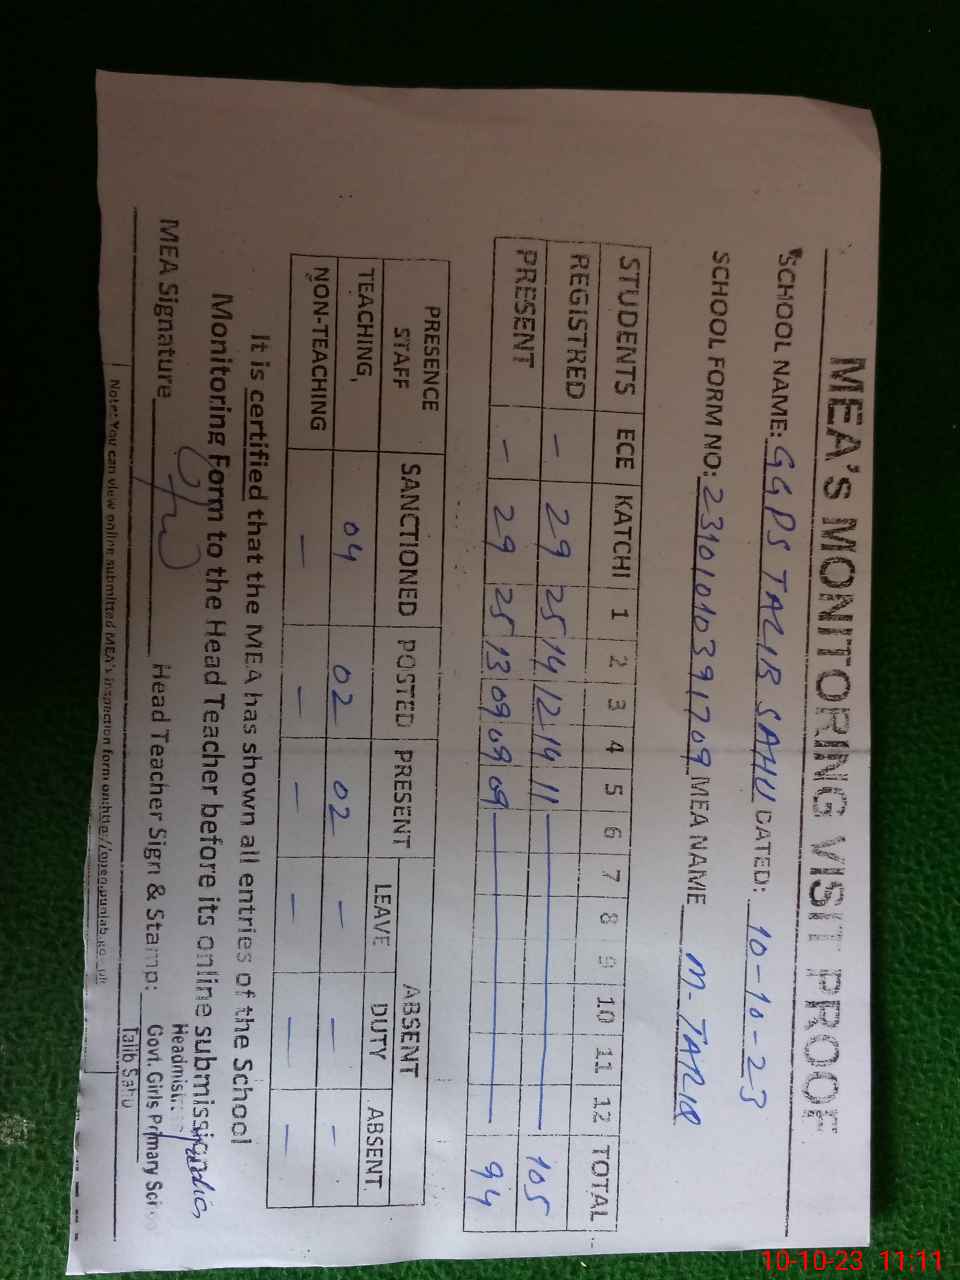 MEA's MONITORING VISIT PROOF
SCHOOL NAME: GGPS TALIB SAHU DATED: 10-10-23
SCHOOL FORM NO: 23101010391709 MEA NAME M. TARIQ
STUDENTS ECE KATCHI 1 2 3 4 5 6 7 8 9 10 11 12 TOTAL
REGISTRED - 29 25 14 12 14 11 105
PRESENT - 29 25 13 09 09 09 94
PRESENCE STAFF SANCTIONED POSTED PRESENT ABSENT
LEAVE DUTY ABSENT
TEACHING, 04 02 02 - - -
NON-TEACHING - - - - - -
It is certified that the MEA has shown all entries of the School
Monitoring Form to the Head Teacher before its online submission
MEA Signature Head Teacher Sign & Stamp:
Govt. Girls Primary
Talib Sahu
Note: You can view online submitted MEA's inspection form on:
10-10-23 11:11